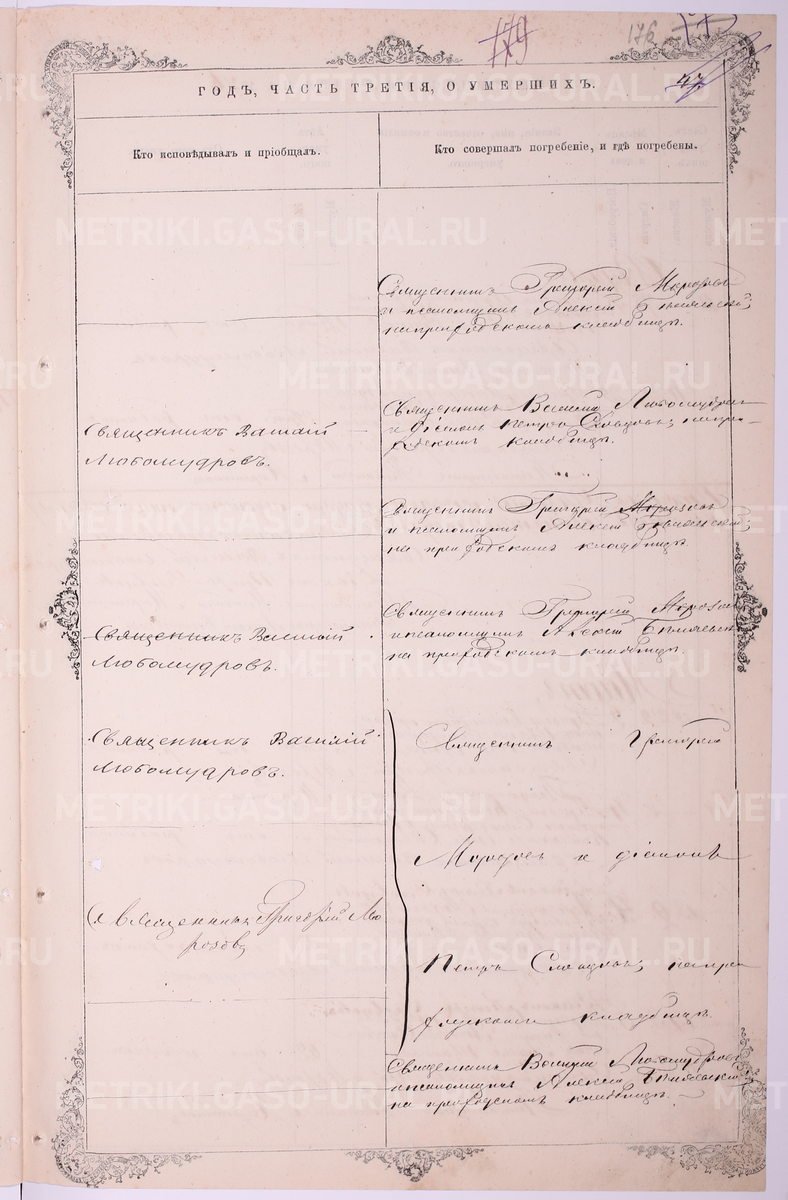 179
176
47
ГОДЪ, ЧАСТЬ ТРЕТІЯ, О УМЕРШИХЪ.
Кто исповѣдывалъ и пріобщалъ.
Кто совершалъ погребеніе, и гдѣ погребены.
METRIKI.GASO-URAL.RU
Священникъ Григорій Морозовъ
и псаломщикъ Алексій
на приходскомъ кладбищѣ.
Священникъ Василій
Любомудровъ.
Священникъ Василій Любомудровъ
и діаконъ Петръ Словцовъ; на при-
ходскомъ кладбищѣ.
Священникъ Григорій Морозовъ
и псаломщикъ Алексій
на приходскомъ кладбищѣ.
Священникъ Василій
Любомудровъ.
Священникъ Григорій Морозовъ
и псаломщикъ Алексій
на приходскомъ кладбищѣ.
Священникъ Василій
Любомудровъ.
Священникъ Григорій Мо
розовъ
Священникъ Григорій
Морозовъ и діаконъ
Петръ Словцовъ; на при
ходскомъ кладбищѣ.
Священникъ Василій Любомудровъ
и псаломщикъ Алексій
на приходскомъ кладбищѣ.